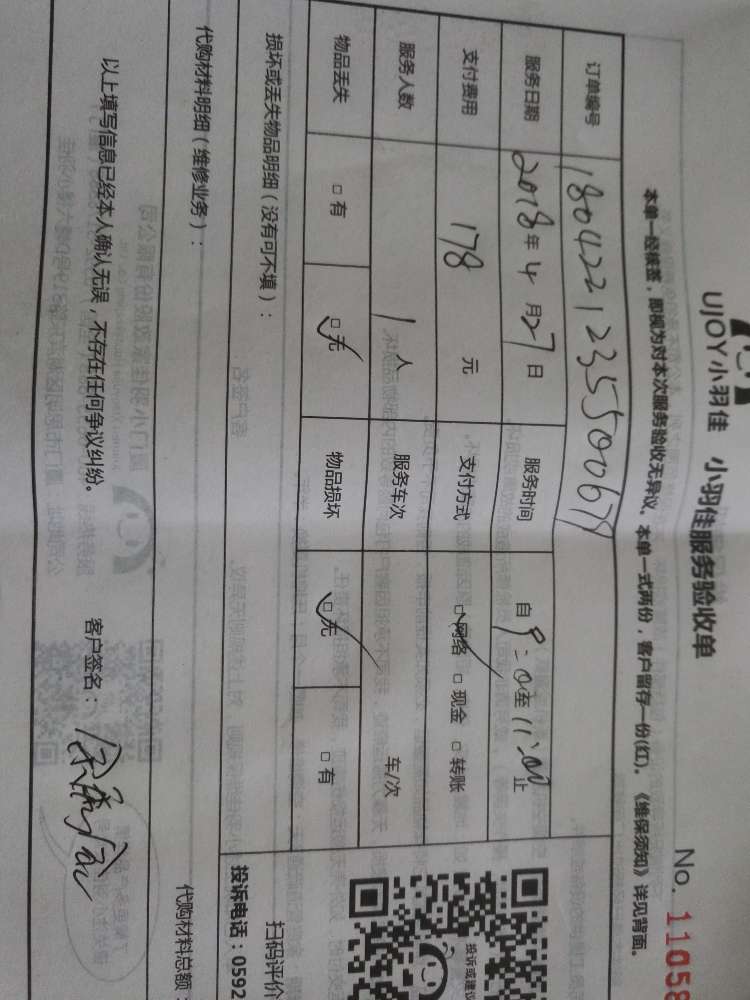 UJOY小羽佳 小羽佳服务验收单
No. 11058
本单一经核签，即视为对本次服务验收无异议。本单一式两份，客户留存一份(红)。《维保须知》详见背面。
订单编号 18042212355500679
服务日期 2018年4月27日 服务时间 自9:00至11:00止
支付费用 178元 支付方式 □网络 □现金 □转账
服务人数 1人 服务车次 车/次
物品丢失 □有 □无 物品损坏 □无 □有
损坏或丢失物品明细（没有可不填）：
代购材料明细（维修业务）：
代购材料总额：
以上填写信息已经本人确认无误，不存在任何争议纠纷。 客户签名：
投诉或建议
扫码评价
投诉电话：0592